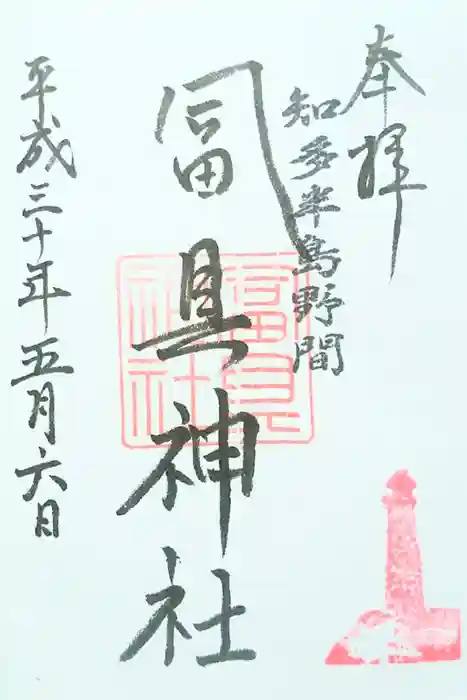 奉拝
知多半島野間
冨具神社
富具神社
平成三十年五月六日